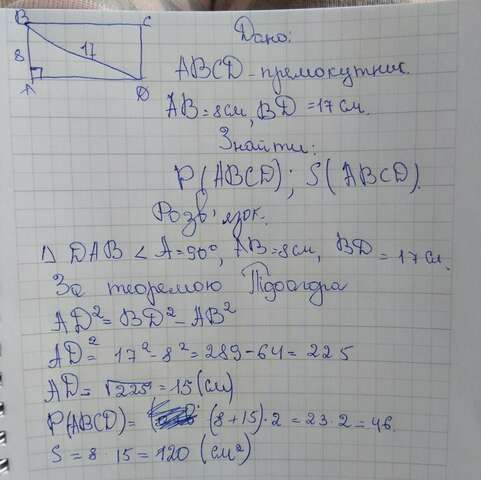 B C
8 17
A D
Дано:
ABCD - прямокутник.
AB = 8см, BD = 17см.
Знайти:
P(ABCD); S(ABCD).
Розв'язок.
△ DAB ∠ A = 90°, AB = 8см, BD = 17см.
За теоремою Піфагора
AD² = BD² - AB²
AD² = 17² - 8² = 289 - 64 = 225
AD = √225 = 15 (см)
P(ABCD) = (8 + 15) · 2 = 23 · 2 = 46.
S = 8 · 15 = 120 (см²)